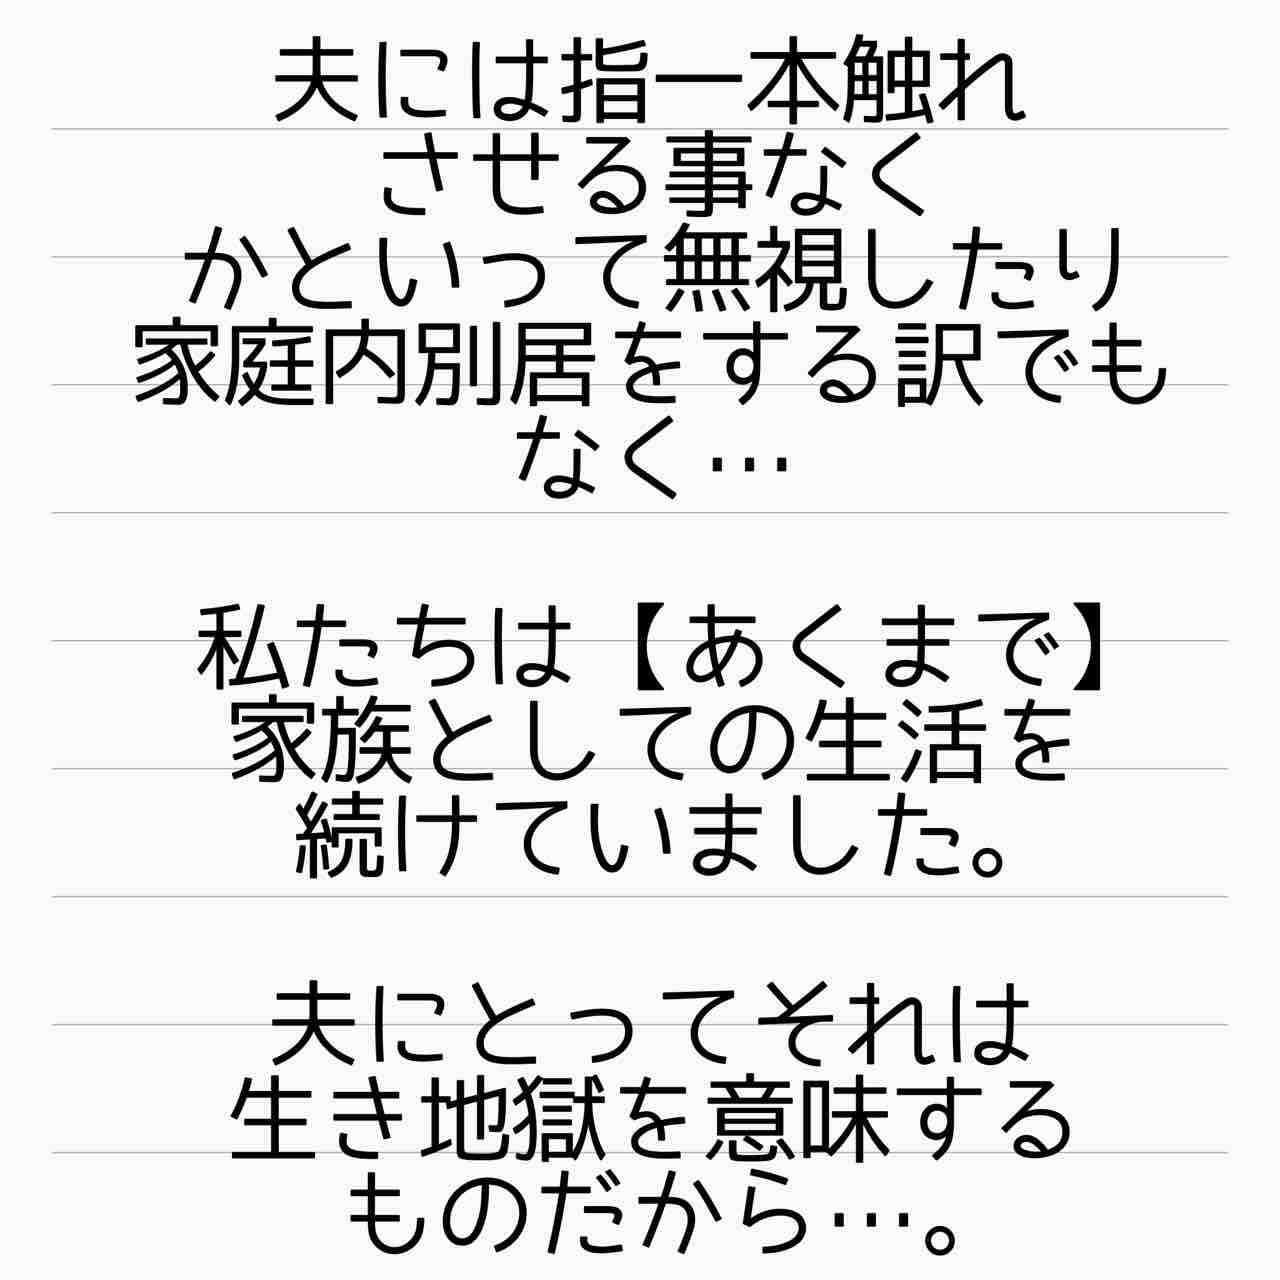 夫には指一本触れ
させる事なく
かといって無視したり
家庭内別居をする訳でも
なく…
私たちは【あくまで】
家族としての生活を
続けていました。
夫にとってそれは
生き地獄を意味する
ものだから…。